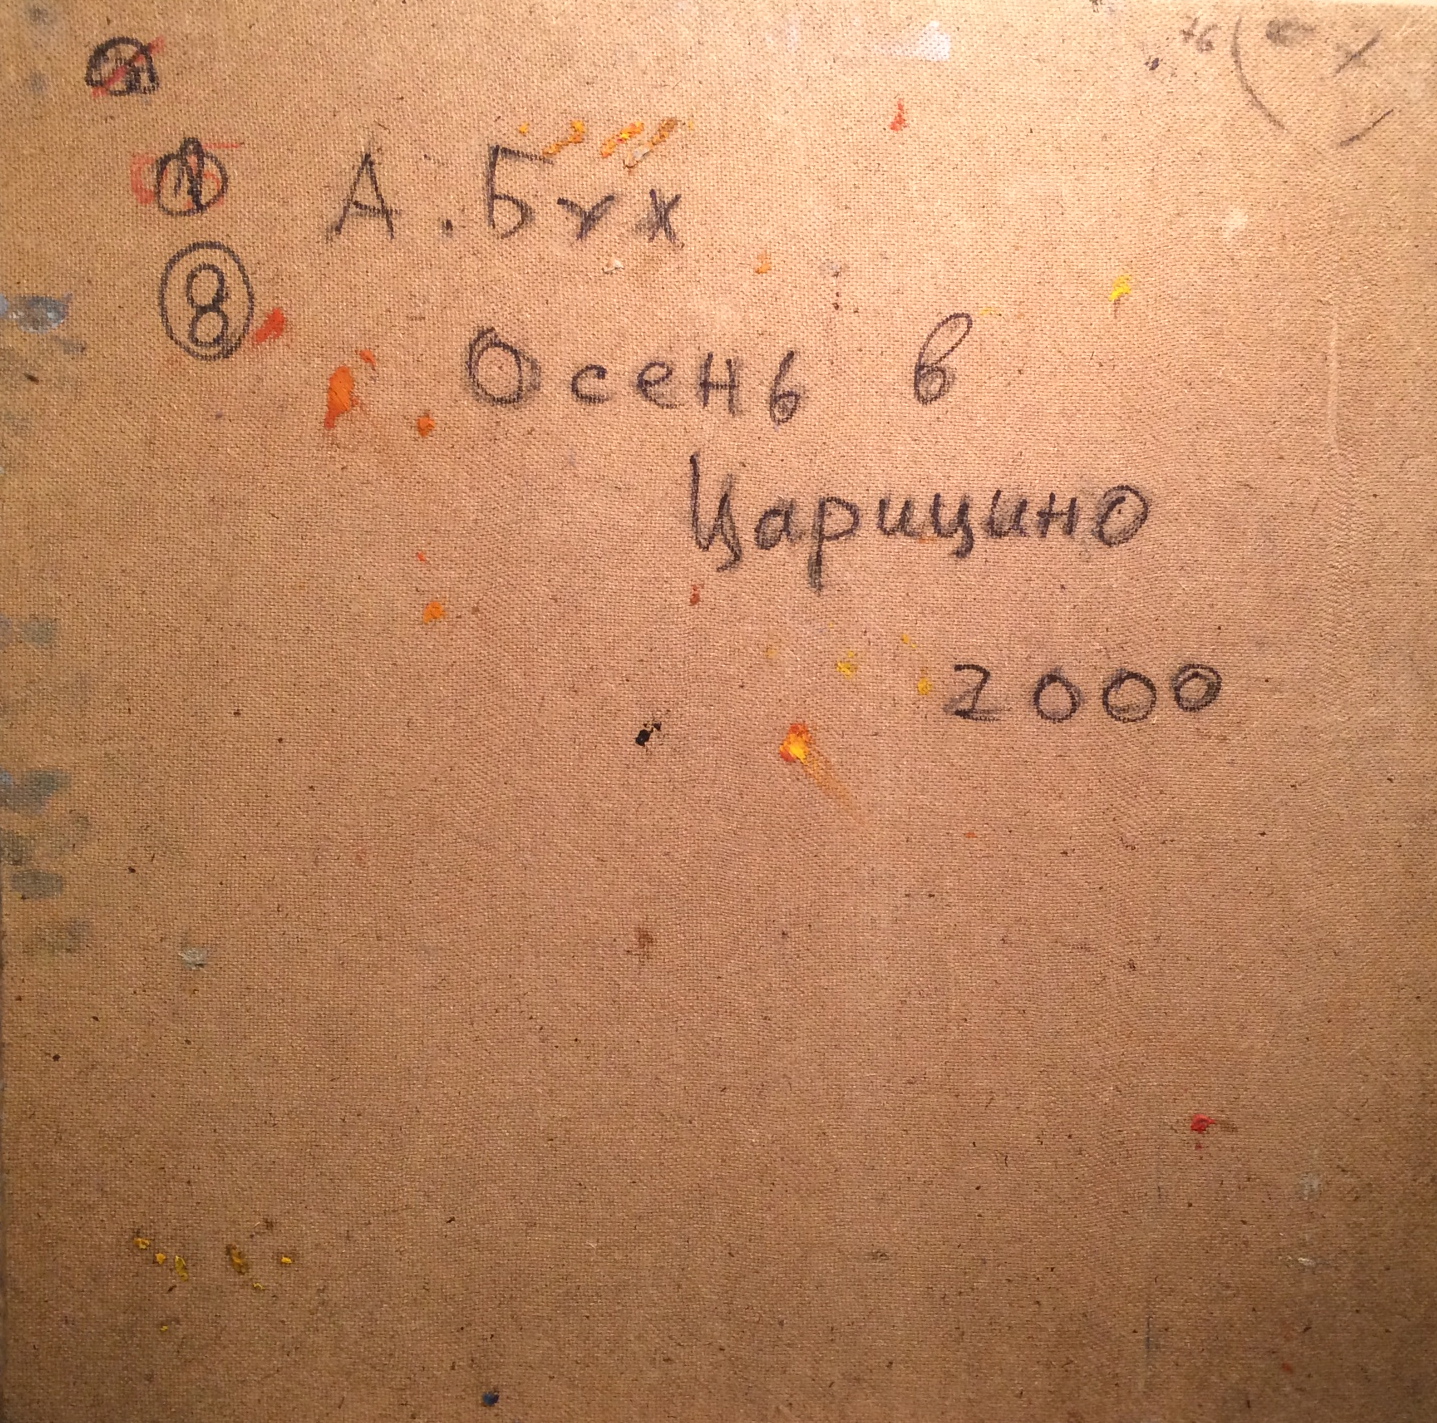 76
А. Бух
8
Осень в
Царицино
2000